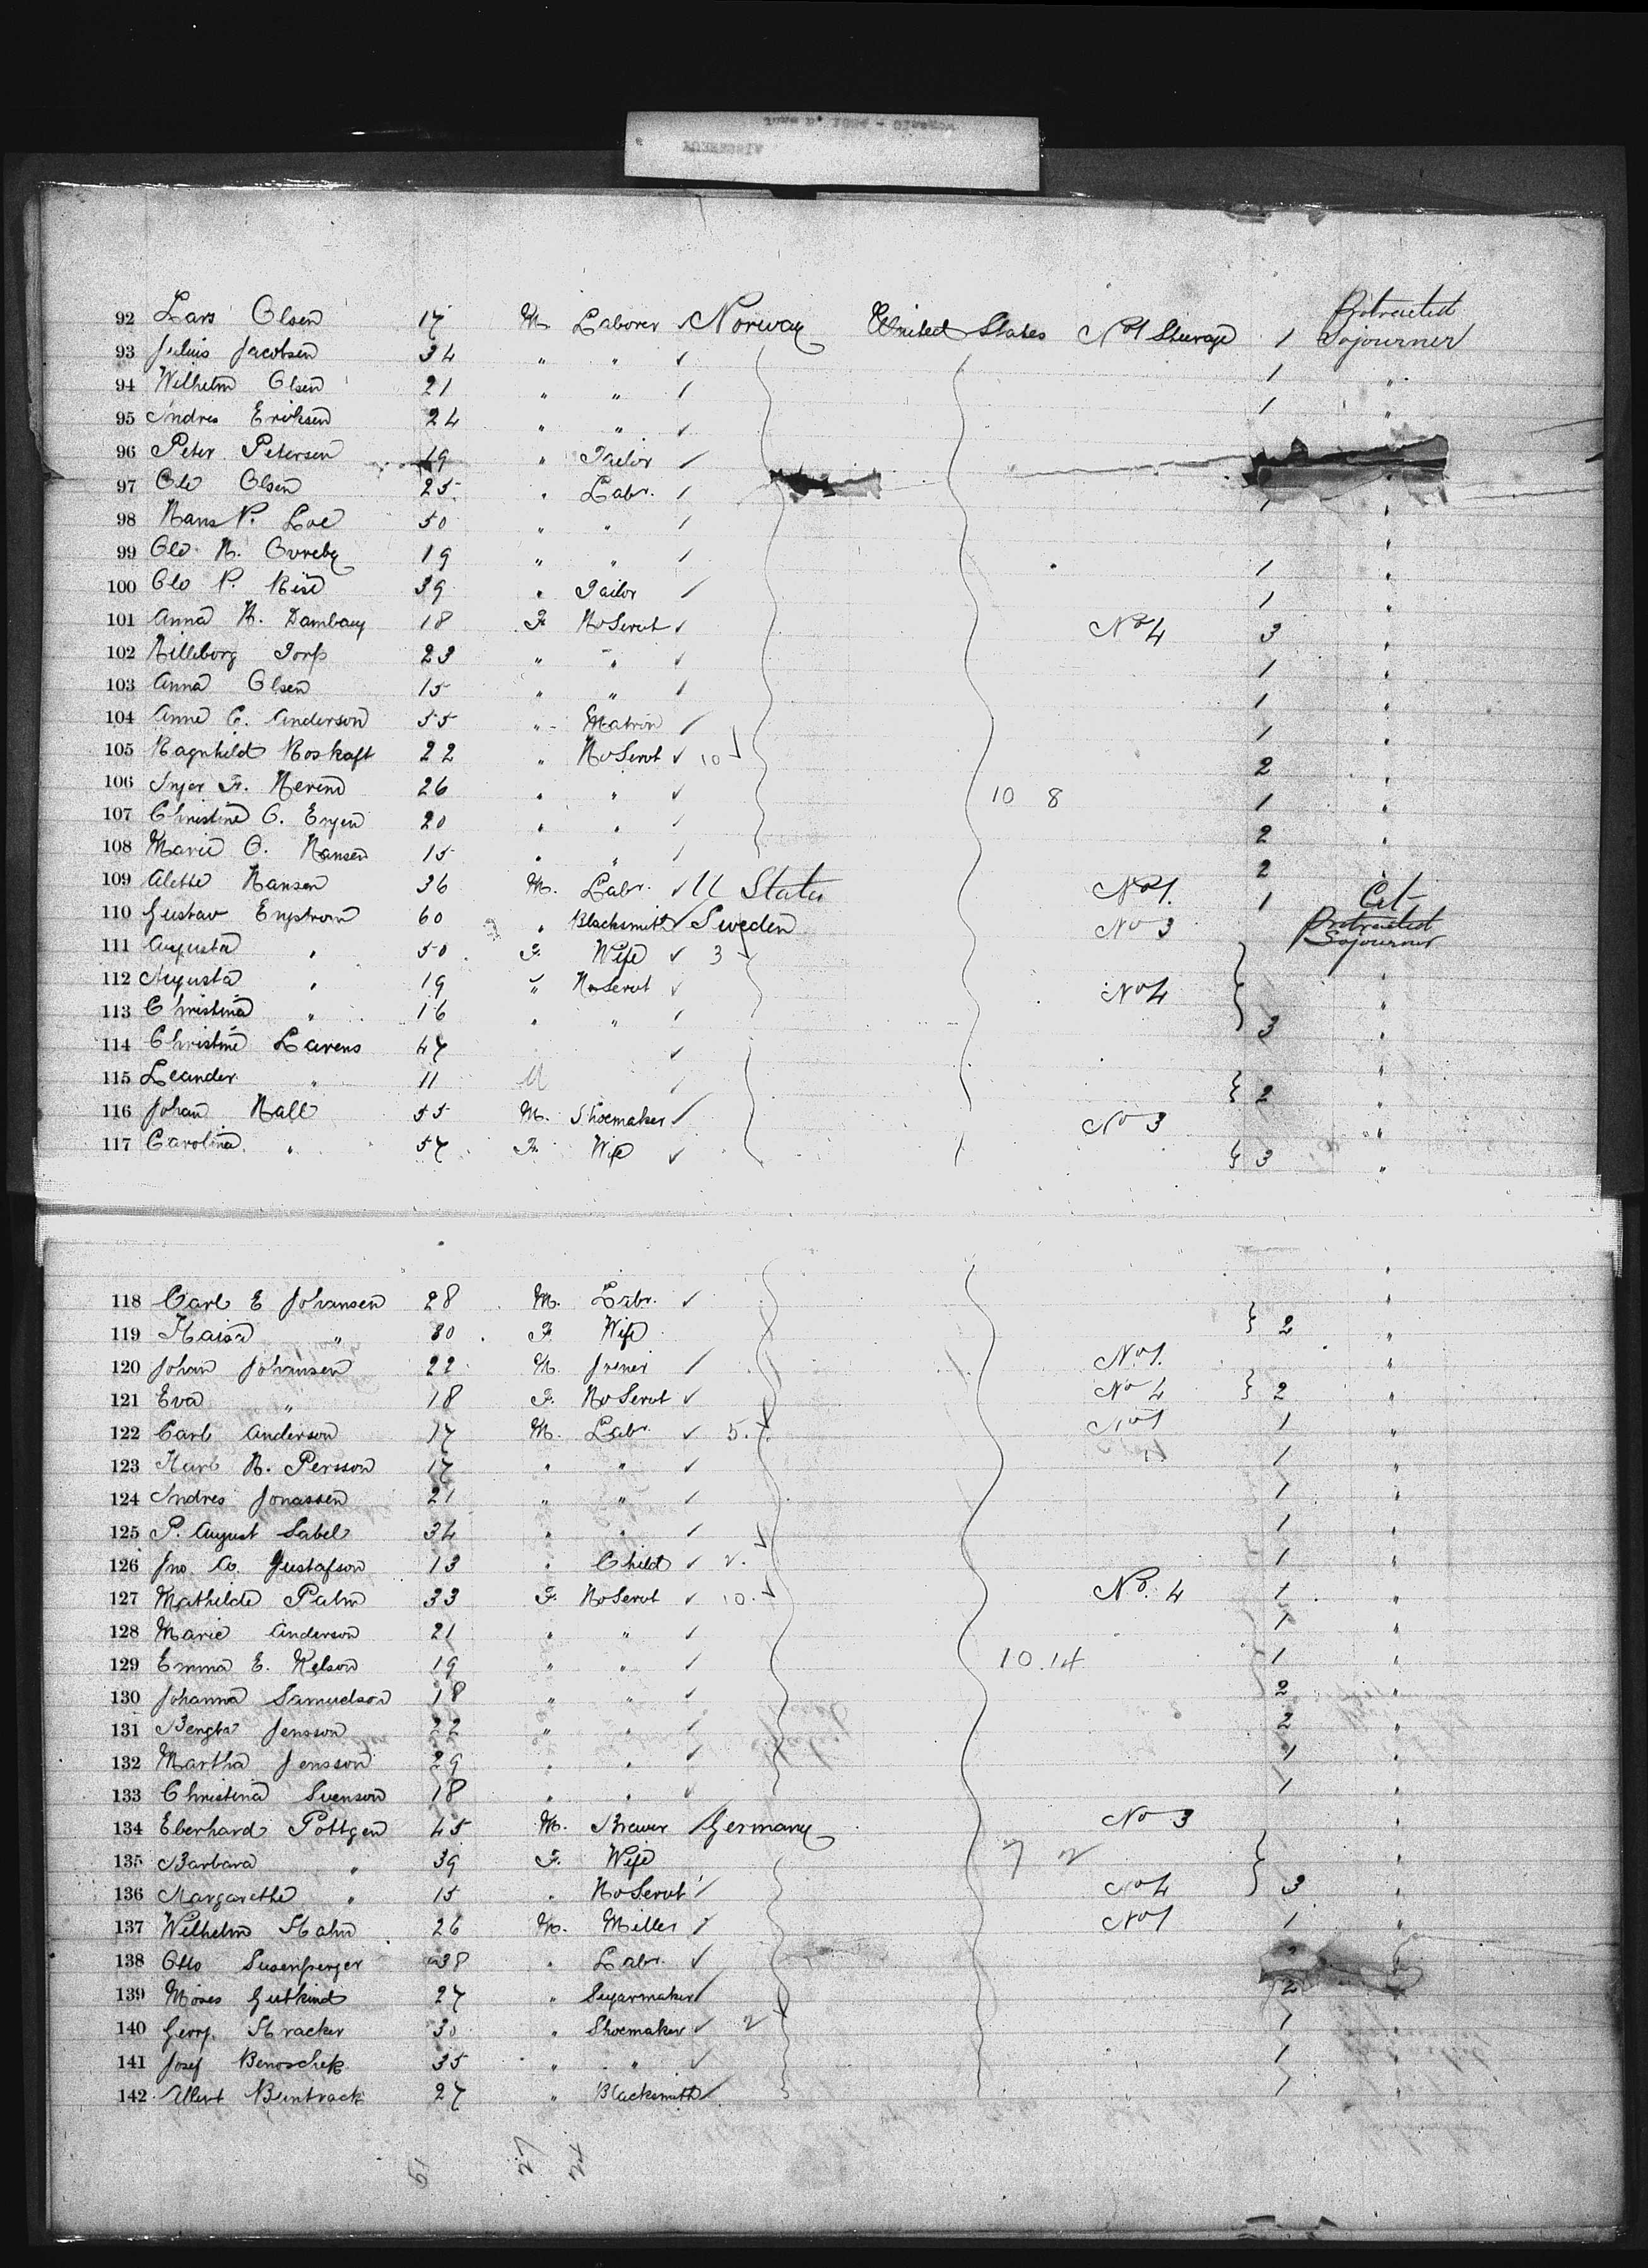 92 Lars Olsen 17 M. Laborer ✓ Norway United States No 1 Steerage 1 Protracted Sojourner
93 Julius Jacobsen 34 " " ✓ 1 "
94 Wilhelm Olsen 21 " " ✓ 1 "
95 Andres Eriksen 24 " " ✓
96 Peter Petersen 19 " Tailor ✓
97 Ole Olsen 25 " Labr. ✓ 1 "
98 Hans P. Loe 50 " " ✓ "
99 Ole H. Ovreby 19 " " ✓ 1 "
100 Ole P. Rise 39 " Tailor ✓ 1 "
101 Anna H. Dambaug 18 F. HoServt ✓ No 4 3 "
102 Hilleborg Torp 23 " " ✓ 1 "
103 Anna Olsen 15 " " ✓ 1 "
104 Anne C. Anderson 55 " Matron ✓ 1 "
105 Ragnhild Roskaft 22 " HoServt ✓ 10 2 "
106 Inger Fr. 26 " " ✓ 10 8 1 "
107 Christine O. Engen 20 " " ✓ 2 "
108 Marie O. Hansen 15 " " ✓ 2
109 Alette Hansen 36 M. Labr. ✓ U States No 1. 1 Cit
110 Gustav Engstrom 60 " Blacksmith ✓ Sweden No 3 Protracted Sojourner
111 Augusta " 50 F. Wife ✓ 3
112 Augusta " 19 " HoServt ✓ No 4 "
113 Christina " 16 " " ✓ 3 "
114 Christine Larens 47 ✓
115 Leander " 11 M ✓ 2 "
116 Johan Hall 55 M. Shoemaker ✓ No 3 "
117 Carolina " 57 F. Wife ✓ 3 "
118 Carl E Johansen 28 M. Labr. ✓ "
119 Kaisa " 30 F. Wife 2 "
120 Johan Johansen 22 M. ✓ No 1. "
121 Eva " 18 F. HoServt ✓ No 4 2 "
122 Carl Anderson 17 M. Labr. ✓ 5. No 1 1 "
123 Karl H. Persson 17 " " ✓ 1 "
124 Andres Jonassen 21 " " ✓ 1 "
125 P. August Sabel 34 " " ✓ 1 "
126 Jno. A. Gustafson 13 " Child ✓ 2. 1 "
127 Mathilde Palm 33 F. HoServt ✓ 10. No. 4 1 "
128 Marie Anderson 21 " " ✓ 1 "
129 Emma E. Nelson 19 " " ✓ 10.14 1 "
130 Johanna Samuelson 18 " " ✓ 2 "
131 Bengta Jensson 22 " " ✓ 2 "
132 Martha Jensson 29 " " ✓ 1 "
133 Christina Svenson 18 " " ✓ 1 "
134 Eberhard Pottgen 45 M. Brewer ✓ Germany No 3 "
135 Barbara " 39 F. Wife 7 2 "
136 Margarethe " 15 " HoServt ✓ No 4 3 "
137 Wilhelm Hahn 26 M. Miller ✓ No 1 1 "
138 Otto Susenberger 38 " Labr. ✓
139 Moses Gutkind 27 " Sugarmaker ✓ 2
140 Georg. Stracker 30 " Shoemaker ✓ 2 1 "
141 Josef Benoschek 35 " " ✓ 1 "
142 Albert Buntrack 27 " Blacksmith ✓ 1 "
51 27 24